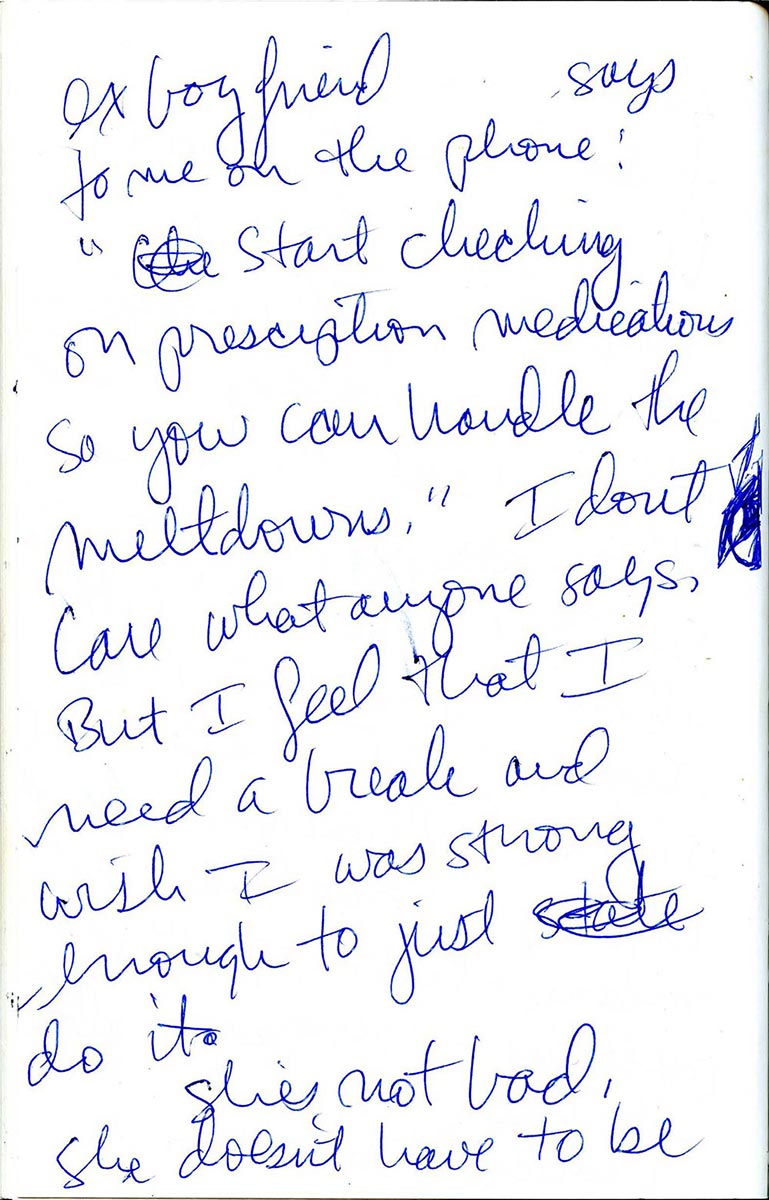 ex boyfriend says
to me on the phone:
" Start checking
on presciption medications
so you can handle the
meltdowns." I dont
care what anyone says.
But I feel that I
need a break and
wish I was strong
enough to just
do it.
she's not bad,
she doesn't have to be